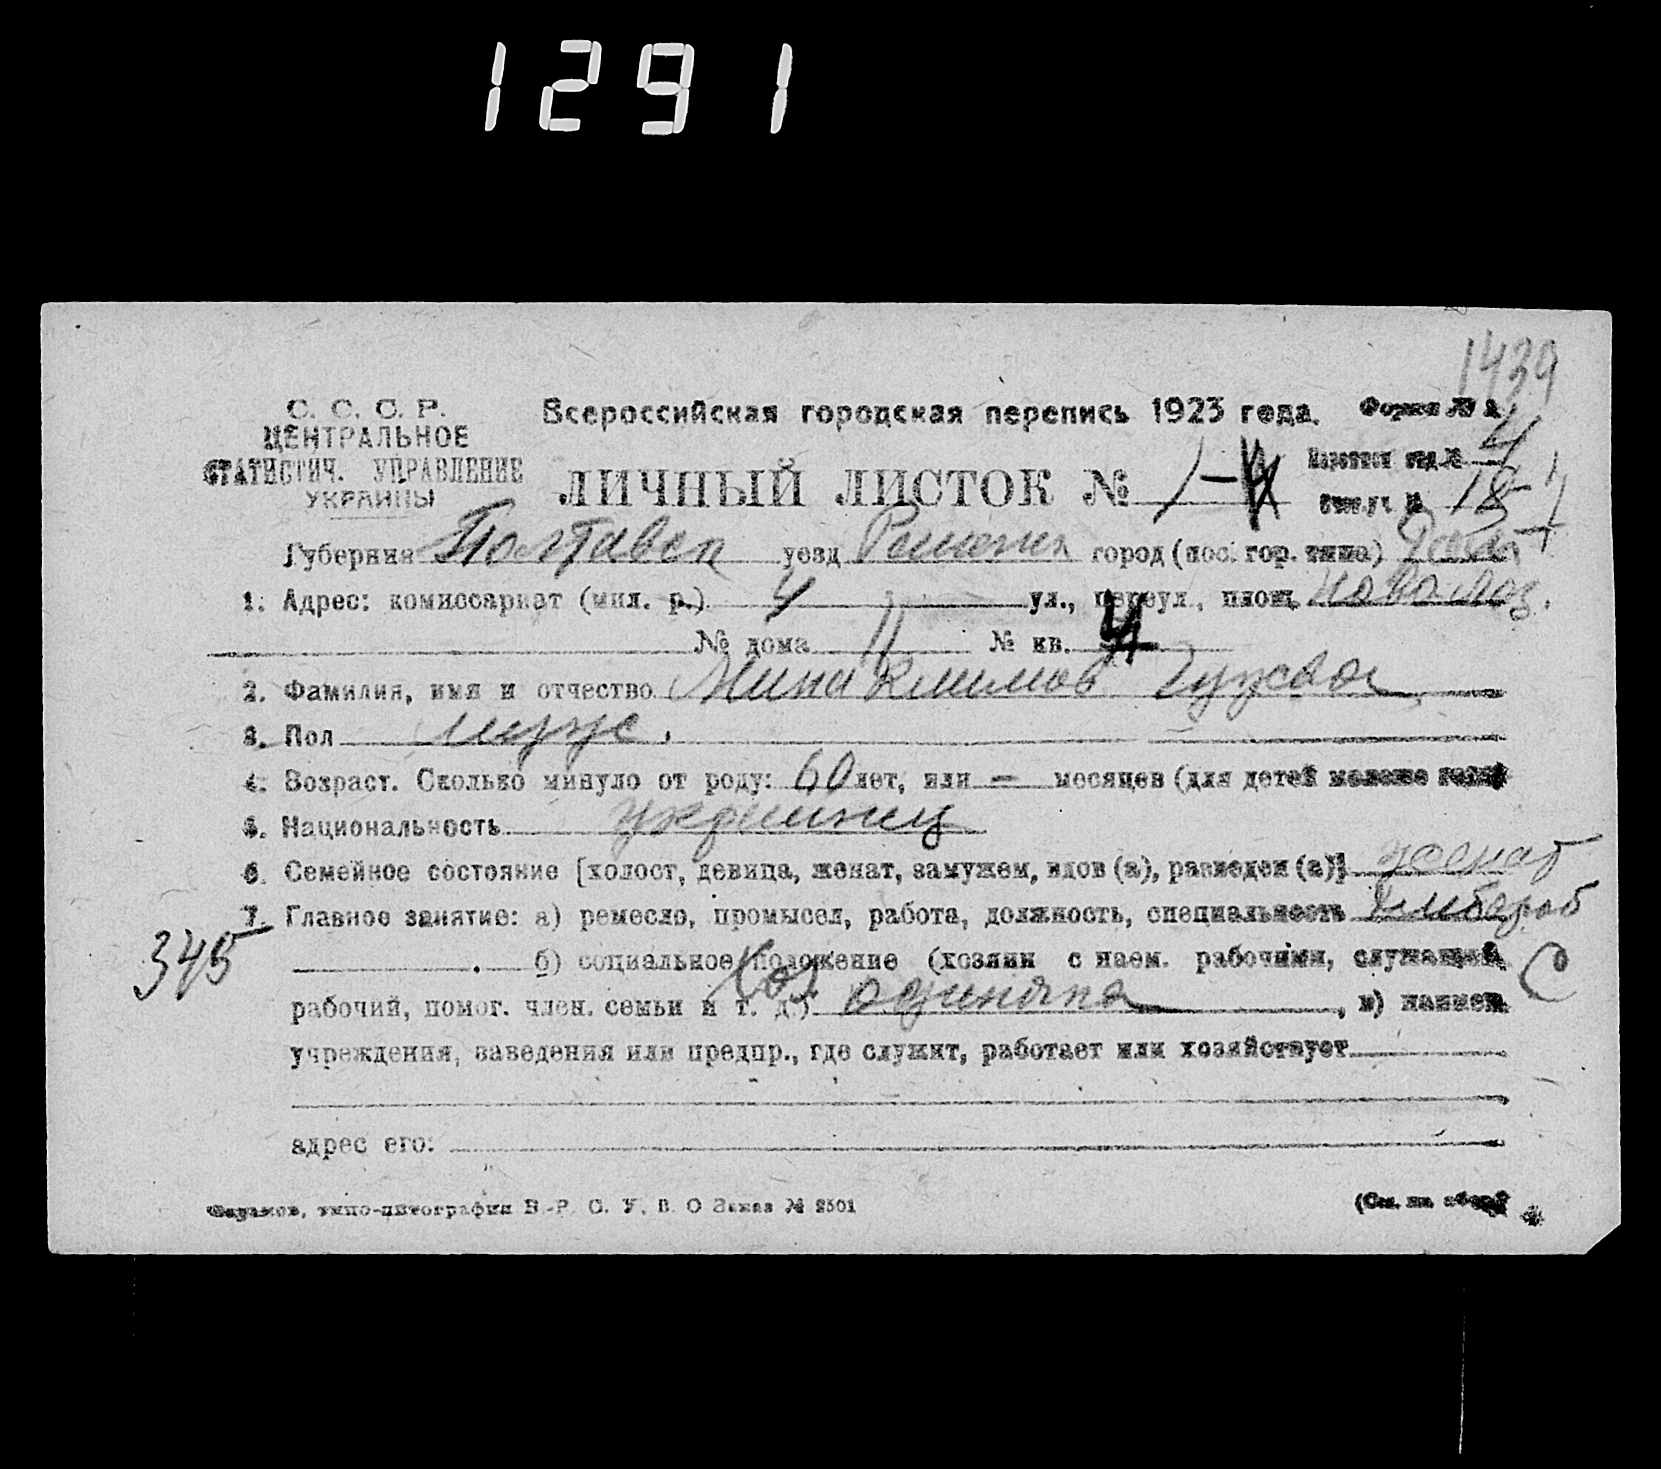 1291
1439
С. С. С. Р.
ЦЕНТРАЛЬНОЕ
СТАТИСТИЧ. УПРАВЛЕНИЕ
УКРАИНЫ
Всероссийская городская перепись 1923 года. Форма № 1
ЛИЧНЫЙ ЛИСТОК № 1-4
4
18
Губерния Полтавск уезд город (пос. гор. типа)
1. Адрес: комиссариат (мил. р.) 4 ул., переул., площ.
№ дома 11 № кв. 4
2. Фамилия, имя и отчество Мина Климов Гужва
3. Пол муж.
4. Возраст. Сколько минуло от роду: 60 лет, или — месяцев (для детей моложе года)
5. Национальность украинец
6. Семейное состояние [холост, девица, женат, замужем, вдов (а), разведен (а)] женат
7. Главное занятие: а) ремесло, промысел, работа, должность, специальность хлебороб
345
б) социальное положение (хозяин с наем. рабочими, служащий,
рабочий, помог. член. семьи и т. д.) одиночка, в) наимен.
учреждения, заведения или предпр., где служит, работает или хозяйствует
адрес его:
типо-литография В.-Р. С. У. В. О Заказ № 2501
(См. на обор.)